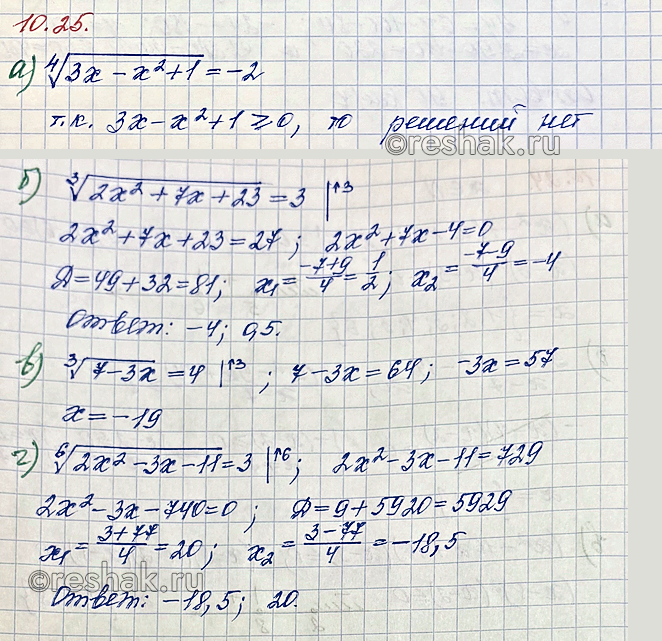 10.25.
а) ⁴√(3x − x² + 1) = −2
т.к. 3x − x² + 1 ⩾ 0, то решений нет
©reshak.ru
б) ³√(2x² + 7x + 23) = 3 |↑3
2x² + 7x + 23 = 27; 2x² + 7x − 4 = 0
Д = 49 + 32 = 81; x₁ = (−7+9)/4 = 1/2; x₂ = (−7−9)/4 = −4
Ответ: −4; 0,5.
в) ³√(7 − 3x) = 4 |↑3; 7 − 3x = 64; −3x = 57
x = −19
г) ⁶√(2x² − 3x − 11) = 3 |↑6; 2x² − 3x − 11 = 729
2x² − 3x − 740 = 0; Д = 9 + 5920 = 5929
x₁ = (3+77)/4 = 20; x₂ = (3−77)/4 = −18,5
©reshak.ru
Ответ: −18,5; 20.